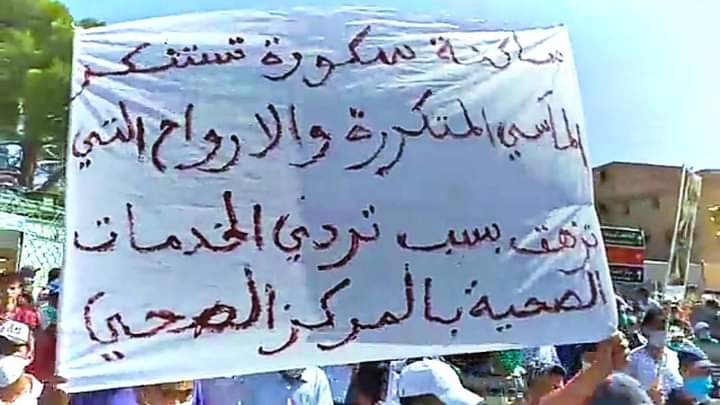 ساكنة سكورة تستنكر
المآسي المتكررة والارواح التي
تزهق بسبب تردي الخدمات
الصحية بالمركز الصحي